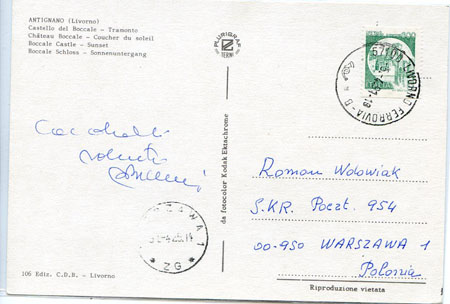 ANTIGNANO (Livorno)
Castello del Boccale - Tramonto
Château Boccale - Coucher du soleil
Boccale Castle - Sunset
Boccale Schloss - Sonnenuntergang
PLURIGRAF
TERNI
57100 LIVORNO FERROVIA
da fotocolor Kodak Ektachrome
Roman Wolowiak
S.KR. Poczt. 954
00-950 WARSZAWA 1
Polonia
106 Ediz. C.D.B. - Livorno
Riproduzione vietata